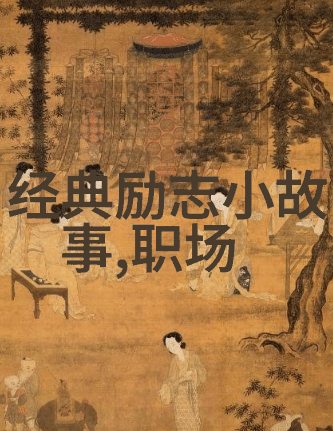 经典励志小故
事,职场